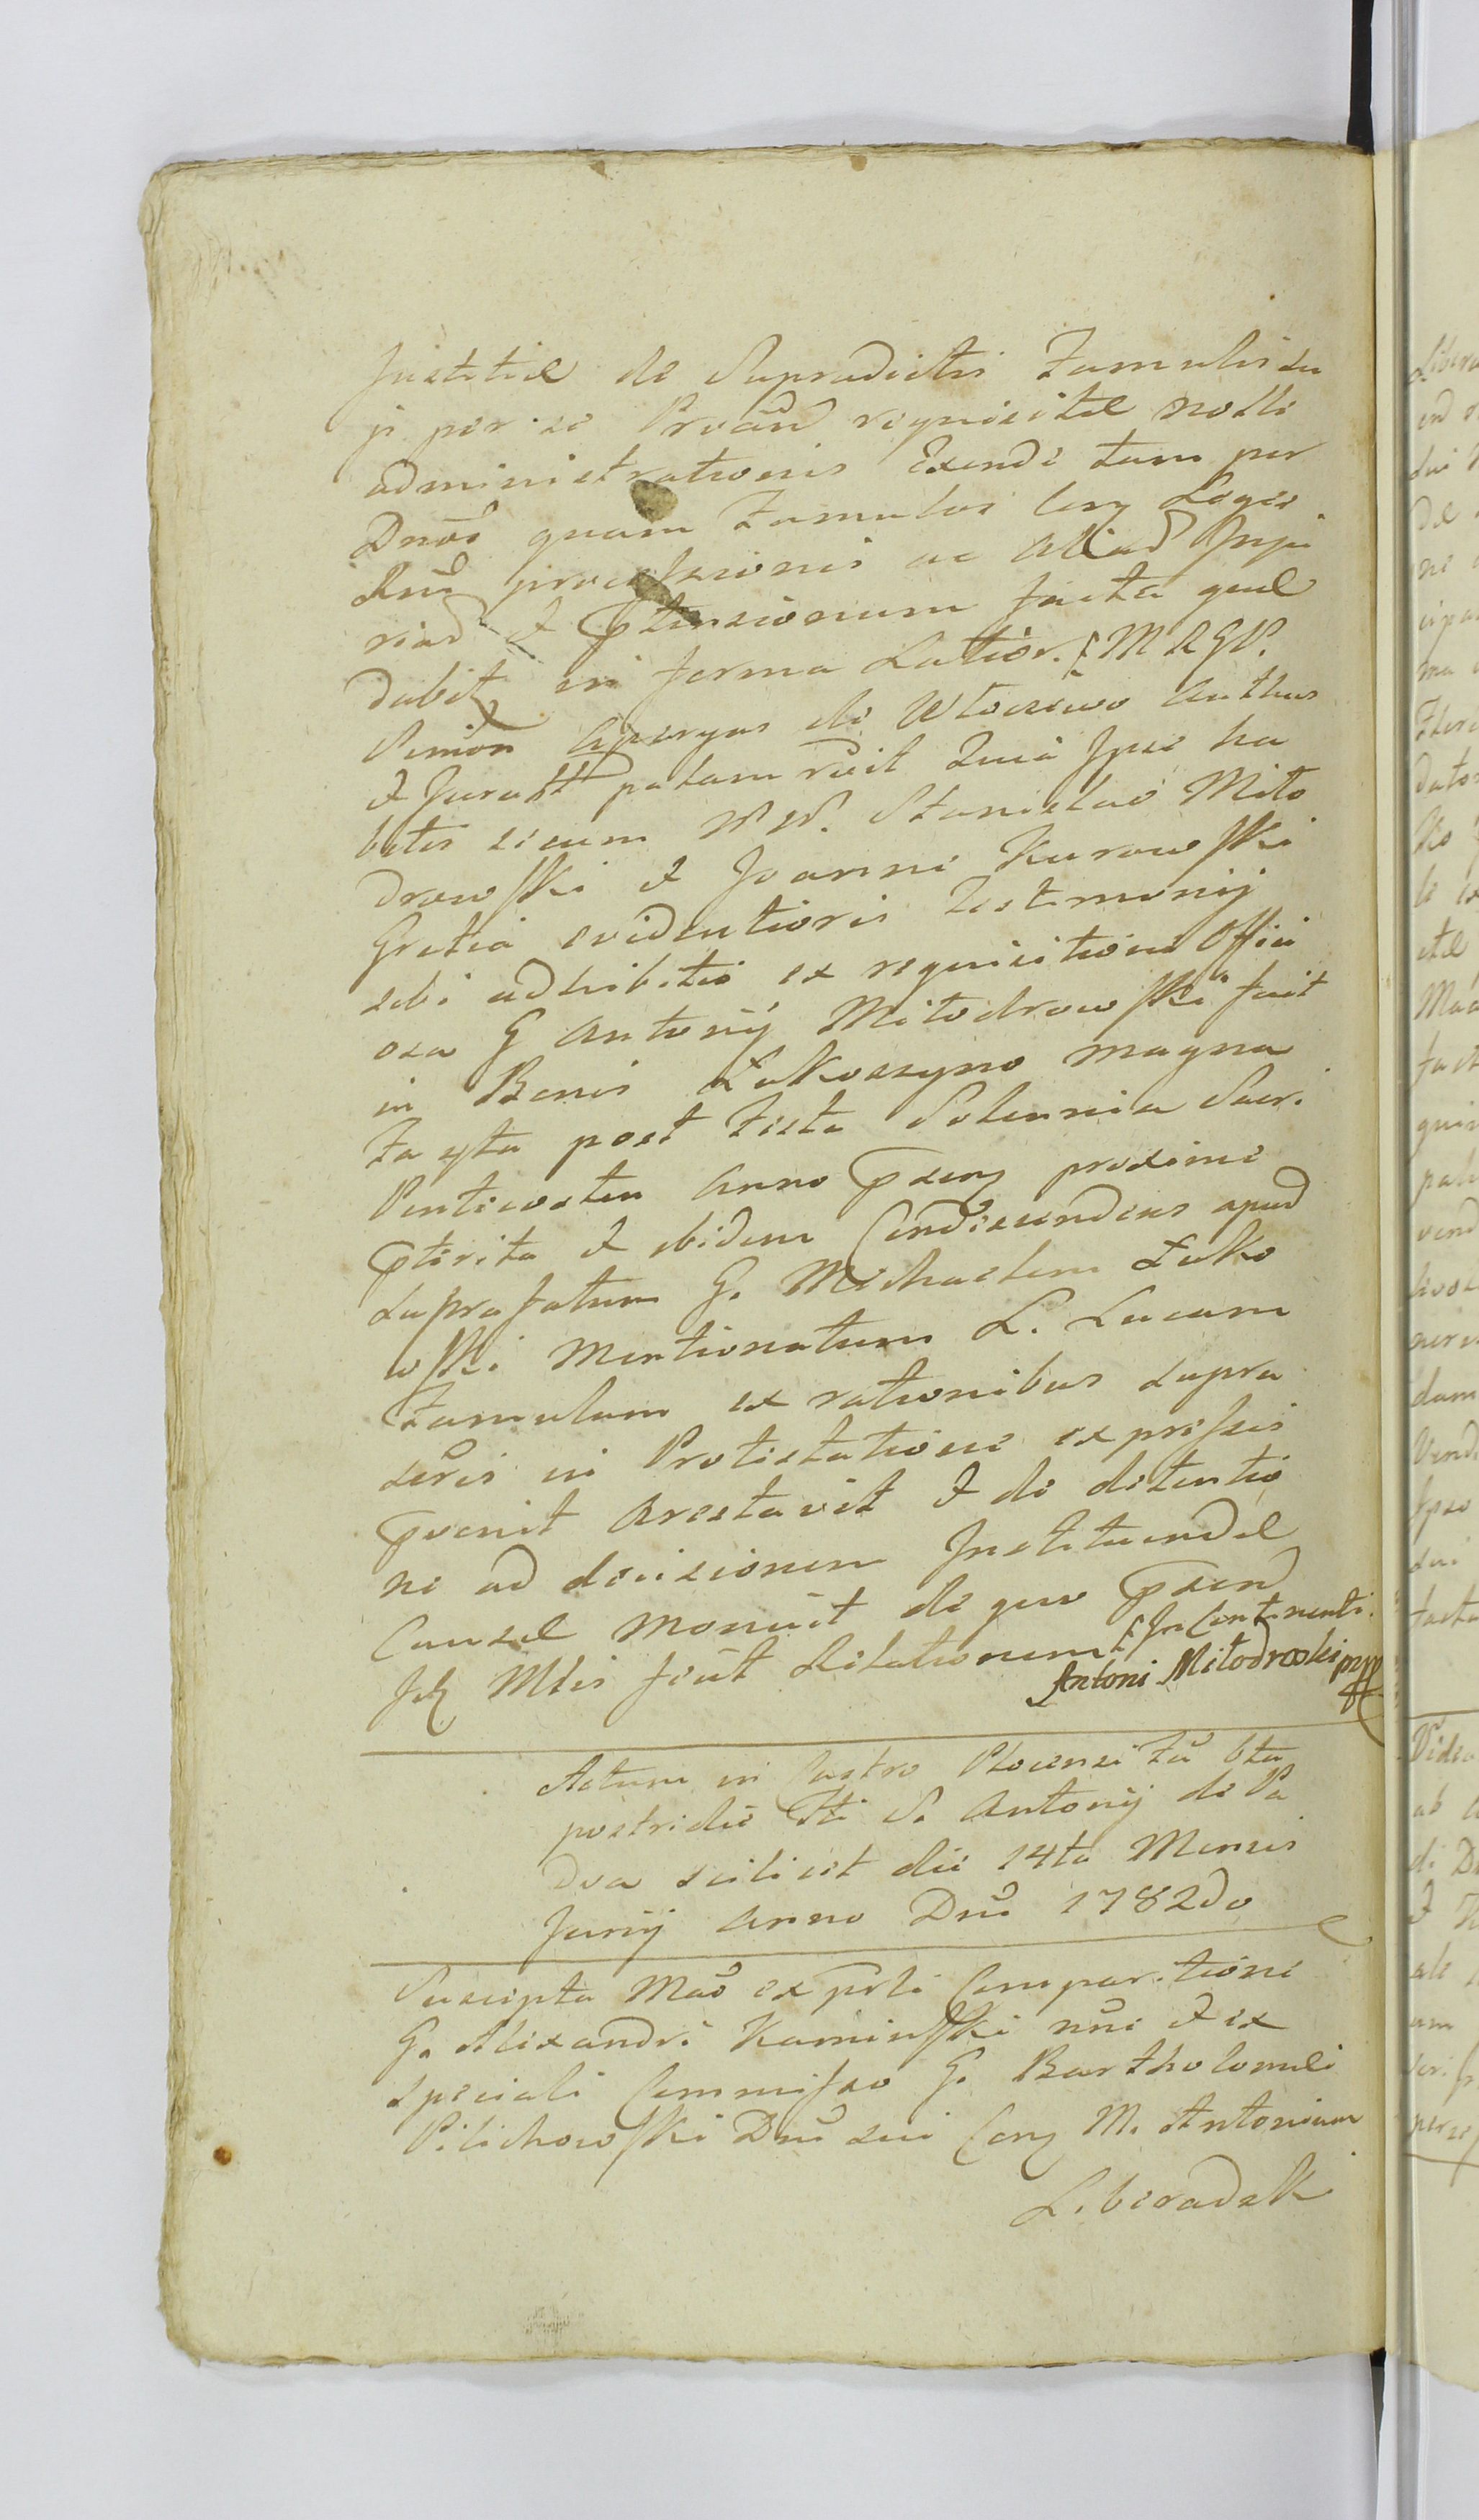 Justitiæ de Supradictis Famulis su
ji per se Provãd requisitæ nolle
administrationis Exinde tam per
Dnõs quam Famulos Cerz Leges
Rnĩ processionis ac Aliađ Inju
riađ & Ptensionum facta quæ
dabitz in forma Latior. MRGP.
Simõn Aperyas de Włoczewo Authus
& Juratt palam rõit Quia Ipse ha
bitis secum NN. Stanislao Miło
drowski & Joanne Kurowski
Gratia evidentioris Testimonij
sibi adhibitis ex requisitione Offici
osa G Antonij Miłodrowski fuit
in Bonis Łukoszyno magna
Fa xta post Festa Solennia Sacr.
Penticosten Anno Psenz proxime
Pterita & ibidem Condescendens apud
suprafatum G. Michaelem Łuko
wski Mentionatum L. Lucam
Famulum ex rationibus supra
scris in Protestatione expressis
Pvenit Arestavit & de detentio
ne ad decisionem Instituendæ
Causæ monuit de quo Psend
Jdz Mtis fecit Relationem In Continenti.
Antoni Miłodroski mpp
Actum in Castro Plocensi Fã 6ta
postridie Fti S. Antonij de Pa
dua scilicet die 14ta Mensis
Junij Anno Dnĩ 1782do
Suscipta Mãõ ex prti Comparitione
G. Alexandri Kaminski nũi & ex
speciali Commisso G. Bartholomæi
Pilichowski Dnĩ sui Corz M. Antonium
Liberadzk